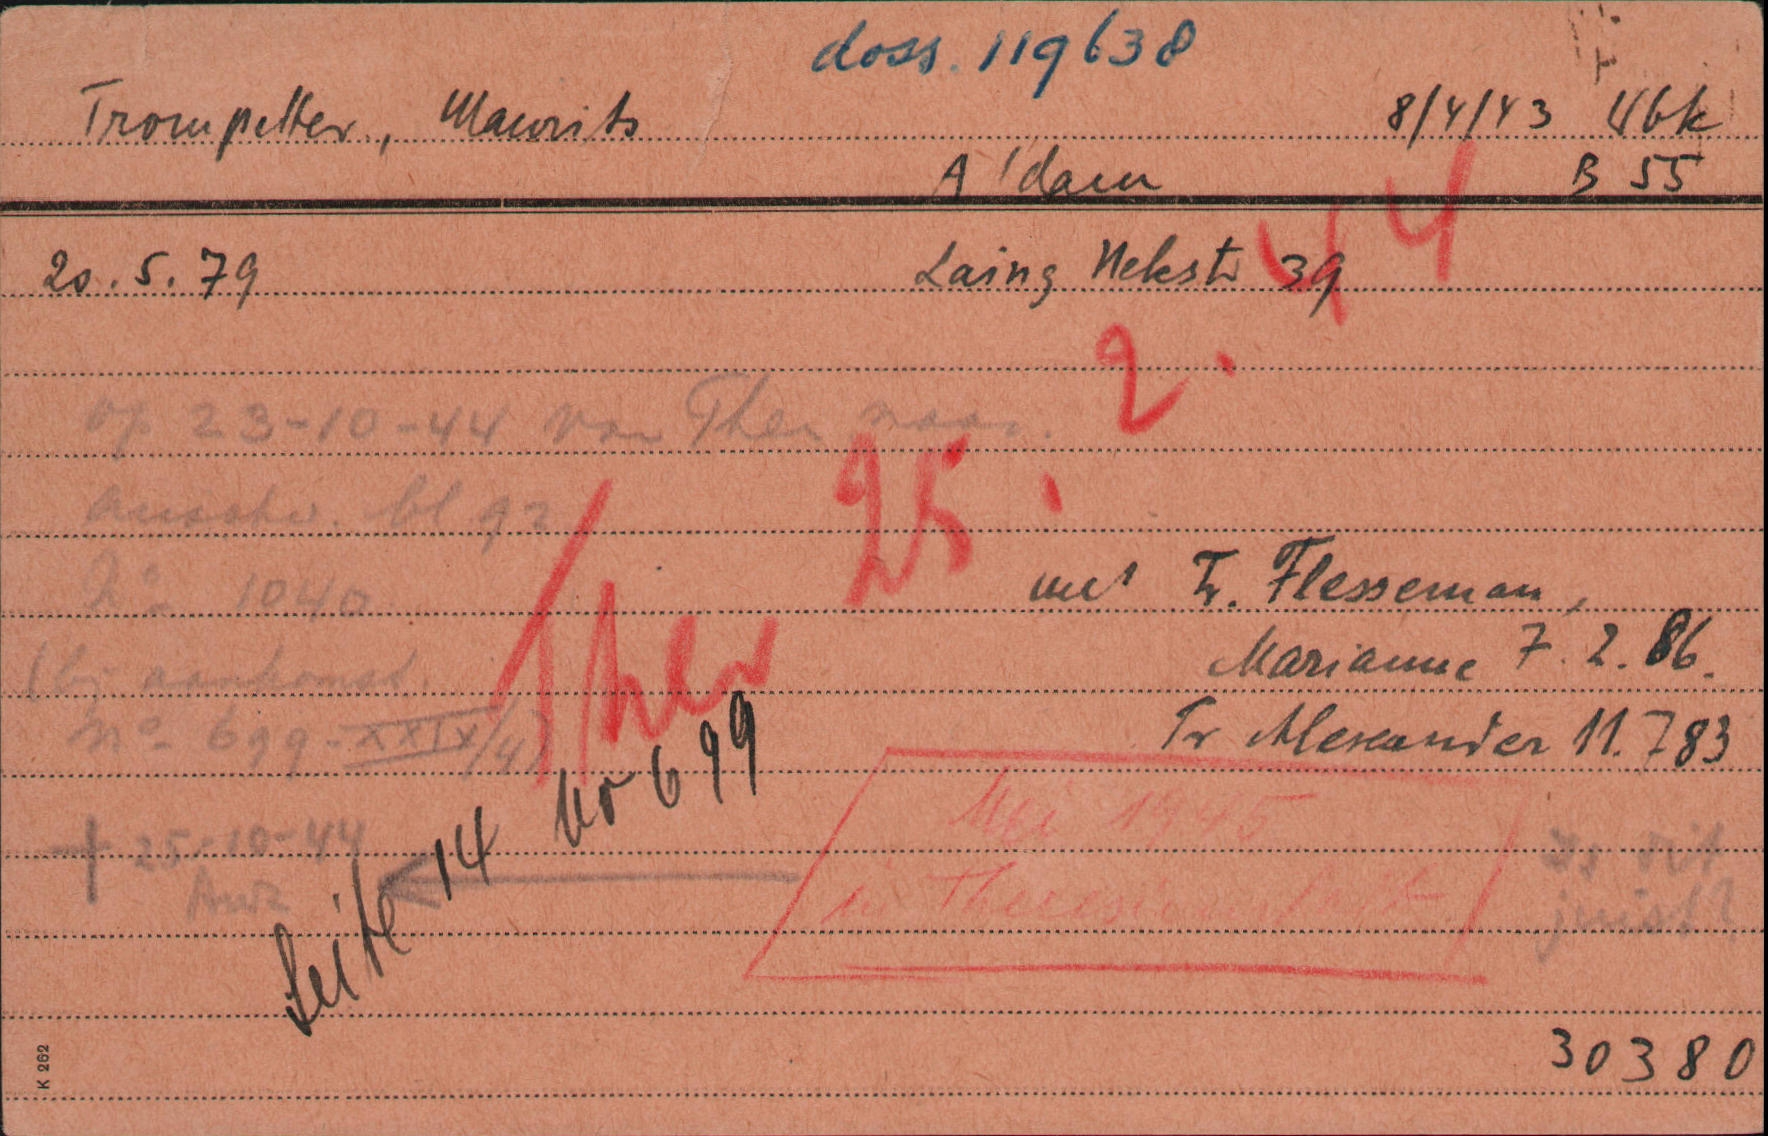 doss. 119638
Trompetter, Maurits
8/4/43 Wbk
A'dam
B 55
20.5.79
Laing Nekstr 39
25. 2. 44
op 23-10-44 van Ther naar
Auschw. bl 92
No 1040
(bij aankomst.
no 699-XXIX/4)
Ther
met Fr. Flesseman,
Marianne 7.2.86.
Fr Alexander 11.7 83
Seite 14 No 699
Mei 1945
in Theresienstadt
† 25-10-44
Auw
Is dit
juist?
30380
K 262